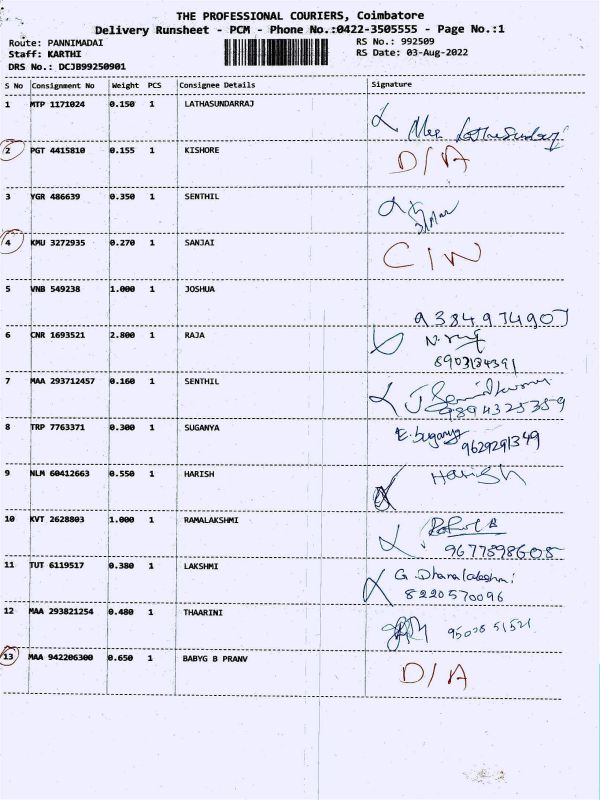 THE PROFESSIONAL COURIERS, Coimbatore
Delivery Runsheet - PCM - Phone No.:0422-3505555 - Page No.:1
Route: PANNIMADAI
RS No.: 992509
Staff: KARTHI
RS Date: 03-Aug-2022
DRS No.: DCJB99250901
S No Consignment No Weight PCS Consignee Details Signature
1 MTP 1171024 0.150 1 LATHASUNDARRAJ
2 PGT 4415810 0.155 1 KISHORE D/A
3 YGR 486639 0.350 1 SENTHIL
4 KMU 3272935 0.270 1 SANJAI C/N
5 VNB 549238 1.000 1 JOSHUA
9384974907
6 CNR 1693521 2.800 1 RAJA
8903134391
7 MAA 293712457 0.160 1 SENTHIL
9894325359
8 TRP 7763371 0.300 1 SUGANYA E. Suganya
9629291349
9 NLM 60412663 0.550 1 HARISH Harish
10 KVT 2628803 1.000 1 RAMALAKSHMI
9677898608
11 TUT 6119517 0.380 1 LAKSHMI G. Dhanalakshmi
8220570096
12 MAA 293821254 0.480 1 THAARINI
13 MAA 942206300 0.650 1 BABYG B PRANV D/A